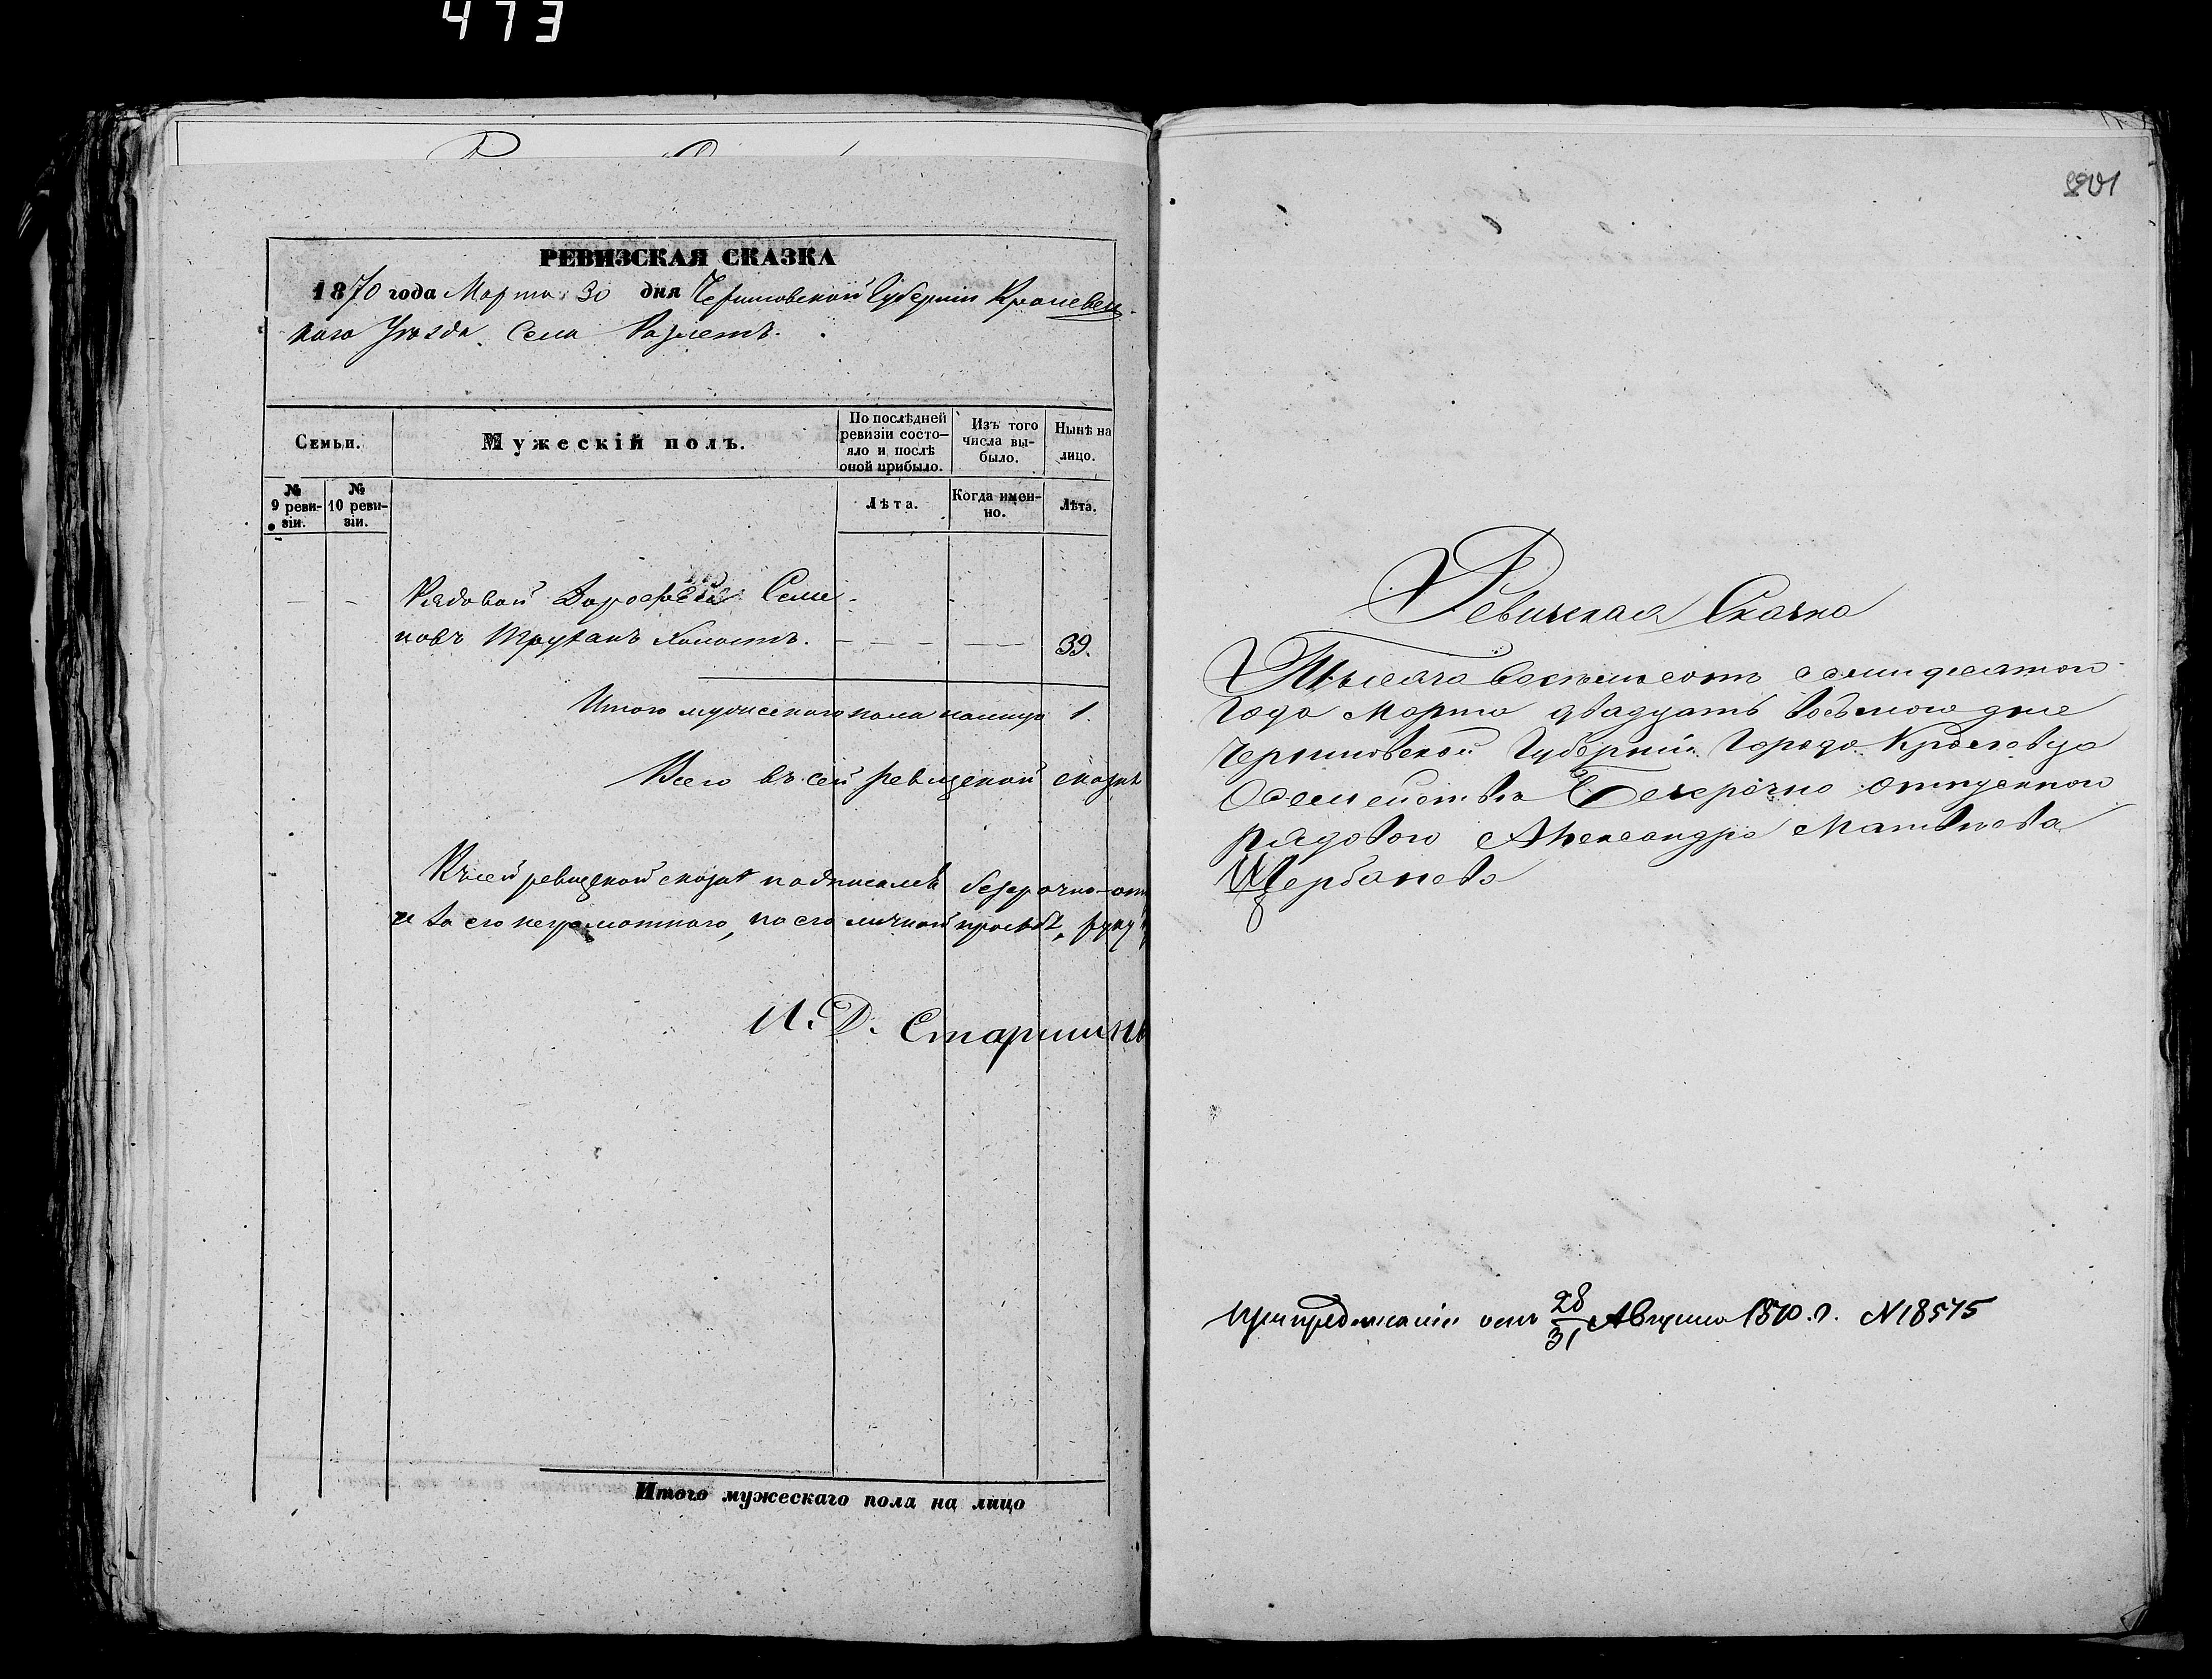 473
РЕВИЗСКАЯ СКАЗКА
1870 года Марта 30 дня Черниговской Губерніи Кролевец-
каго Уѣзда. Села Разлетъ.
Семьи.
Мужескій полъ.
По послѣдней ревизіи состо-яло и послѣ оной прибыло.
Изъ того числа вы-было.
Нынѣ на лицо.
№ 9 реви-зіи.
№ 10 реви-зіи.
Лѣта.
Когда имен-но.
Лѣта.
Рядовой Дорофей Семе-
новъ Труханъ холостъ. 39.
Итого мужескаго пола налицо 1.
Всего въ сей ревизской сказкѣ
Къ сей ревизской сказкѣ подписался безсрочно-отп
а за его неграмотнаго, по его личной просьбѣ, руку
И. Д. Старшины
Итого мужескаго пола на лицо
201
Ревизская Сказка
Тысяча восемьсотъ семидесятого
года Марта двадцать восьмого дня
Черниговской Губерніи Города Кролевца
О семействѣ Безсрочно отпускного
рядового Александра Матвѣева
Щербакова
При предписаніи отъ 28/31 Августа 1870 г. N 18575